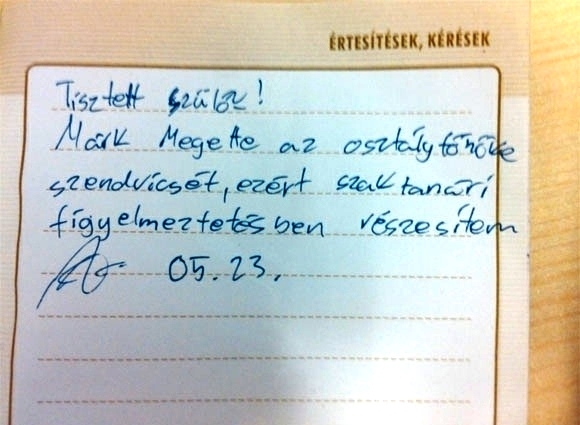 ÉRTESÍTÉSEK, KÉRÉSEK
Tisztelt szülők!
Márk Megette az osztályfőnöke
szendvicsét, ezért szaktanári
figyelmeztetésben részesítem
05.23.